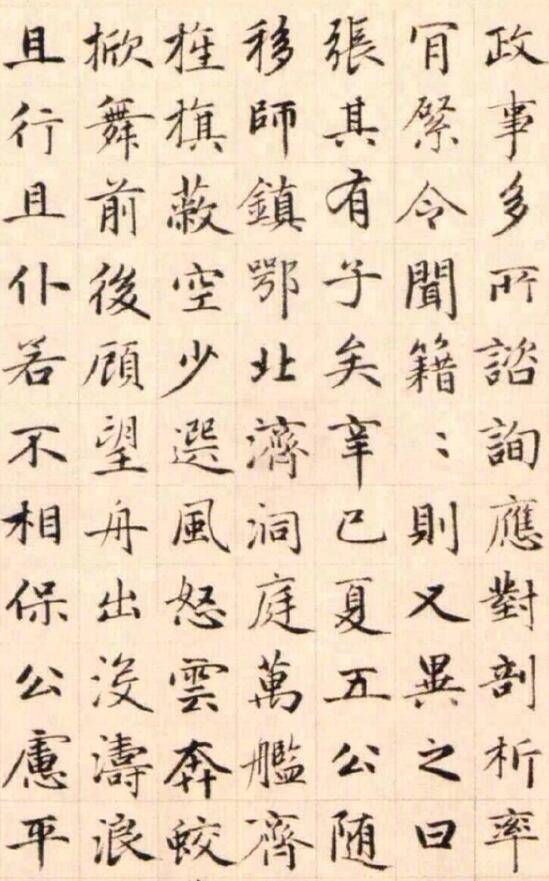 政事多所諮詢應對剖析率
冐綮令聞籍〻則又異之曰
張其有子矣辛巳夏五公随
移師鎮鄂北濟洞庭萬艦齊
旌旗蔽空少選風怒雲奔蛟
掀舞前後顧望舟出没濤浪
且行且仆若不相保公慮平